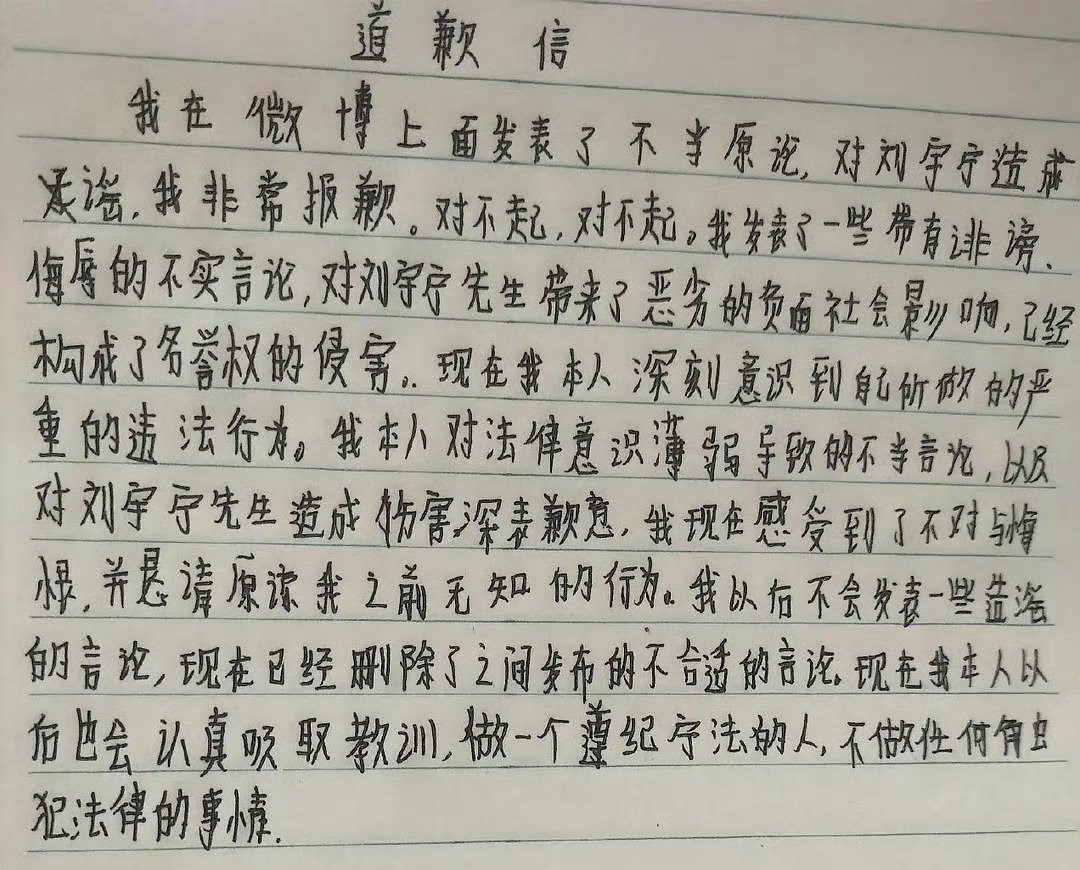 道歉信
我在微博上面发表了不当原论,对刘宇宁造成
谣,我非常报歉。对不起,对不起。我发表了一些带有诽谤、
侮辱的不实言论,对刘宇宁先生带来了恶劣的负面社会影响,已经
构成了名誉权的侵害。现在我本人深刻意识到自己所做的严
重的违法行为。我本人对法律意识薄弱导致的不当言论,以及
对刘宇宁先生造成伤害深表歉意,我现在感受到了不对与悔
恨,并恳请原谅我之前无知的行为。我以后不会发表一些造谣
的言论,现在已经删除了之间发布的不合适的言论。现在我本人以
后也会认真吸取教训,做一个遵纪守法的人,不做任何触
犯法律的事情.